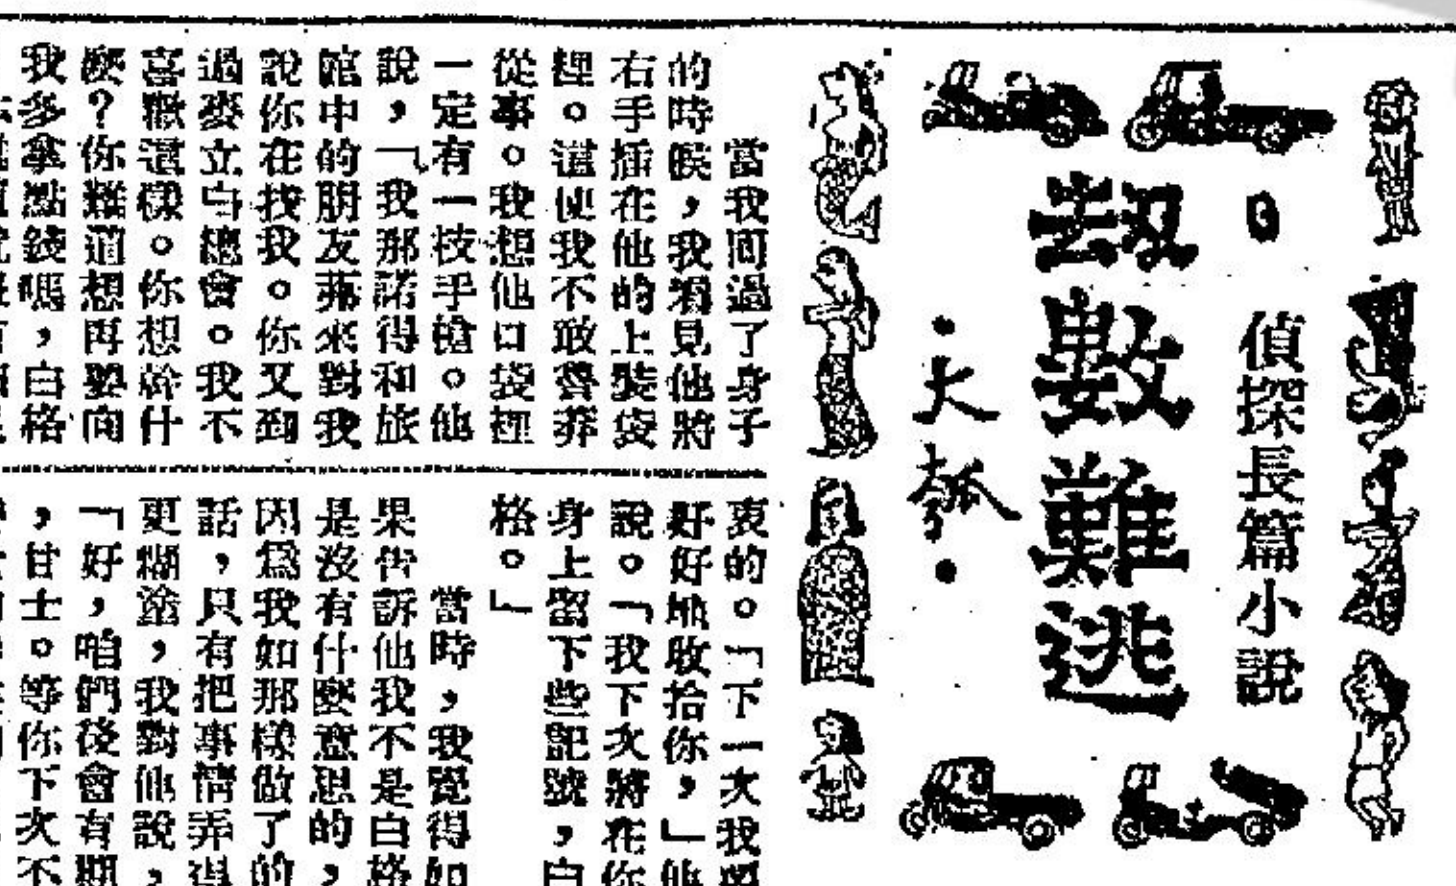 偵探長篇小說
劫數難逃
當我囘過了身子
的時候，我瞧見他將
右手插在他的上裝袋
裡。這使我不敢魯莽
從事。我想他口袋裡
一定有一枝手槍。他
說，「我那諾得和旅
館中的朋友茀來對我
說你在找我。你又到
過麥立白總會。我不
喜歡這樣。你想幹什
麼？你難道想再要向
我多拿點錢嗎，白格
衷的。「下一次我
好好地收拾你，」他
說。「我下次將在你
身上留下些記號，白
格。」
當時，我覺得如
果告訴他我不是白格
是沒有什麼意思的，
因為我如那樣做了的
話，只有把事情弄得
更糊塗，我對他說，
「好，咱們後會有期
，甘士。等你下次不